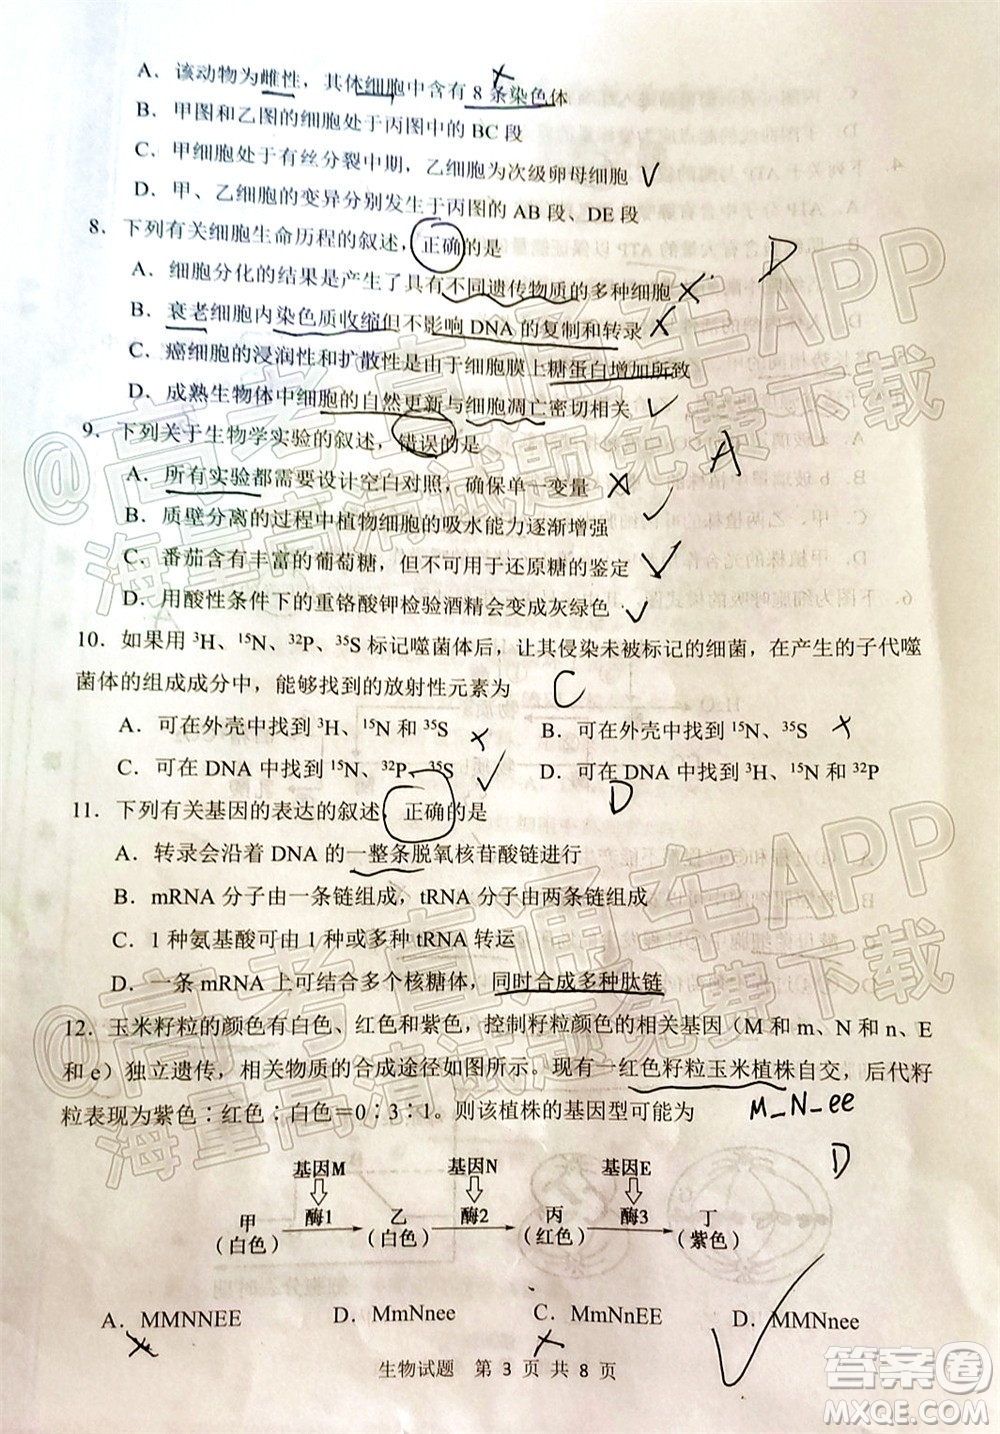 A．该动物为雌性，其体细胞中含有 8 条染色体
B．甲图和乙图的细胞处于丙图中的 BC 段
C．甲细胞处于有丝分裂中期，乙细胞为次级卵母细胞
D．甲、乙细胞的变异分别发生于丙图的 AB 段、DE 段
8．下列有关细胞生命历程的叙述，正确的是 D
A．细胞分化的结果是产生了具有不同遗传物质的多种细胞
B．衰老细胞内染色质收缩但不影响 DNA 的复制和转录
C．癌细胞的浸润性和扩散性是由于细胞膜上糖蛋白增加所致
D．成熟生物体中细胞的自然更新与细胞凋亡密切相关
9．下列关于生物学实验的叙述，错误的是 A
A．所有实验都需要设计空白对照，确保单一变量
B．质壁分离的过程中植物细胞的吸水能力逐渐增强
C．番茄含有丰富的葡萄糖，但不能用于还原糖的鉴定
D．用酸性条件下的重铬酸钾检验酒精会变成灰绿色
10．如果用 ³H、¹⁵N、³²P、³⁵S 标记噬菌体后，让其侵染未被标记的细菌，在产生的子代噬
菌体的组成成分中，能够找到的放射性元素为 C
A．可在外壳中找到 ³H、¹⁵N 和 ³⁵S B．可在外壳中找到 ¹⁵N、³⁵S
C．可在 DNA 中找到 ³H、¹⁵N、³²P、³⁵S D．可在 DNA 中找到 ¹⁵N 和 ³²P
11．下列有关基因的表达的叙述，正确的是 D
A．转录会沿着 DNA 的一整条脱氧核苷酸链进行
B．mRNA 分子由一条链组成，tRNA 分子由两条链组成
C．1 种氨基酸可由 1 种或多种 tRNA 转运
D．一条 mRNA 上可结合多个核糖体，同时合成多种肽链
12．玉米籽粒的颜色有白色、红色和紫色，控制籽粒颜色的相关基因（M 和 m、N 和 n、E
和 e）独立遗传，相关物质的合成途径如图所示。现有一红色籽粒玉米植株自交，后代籽
粒表现为紫色∶红色∶白色＝0∶3∶1。则该植株的基因型可能为 M_N_ee
D
基因M 基因N 基因E
甲 酶1 乙 酶2 丙 酶3 丁
(白色) (白色) (红色) (紫色)
A．MMNNEE D．MmNnee C．MmNnEE D．MMnnee
生物试题 第 3 页 共 8 页
@高考直通车APP
海量高清试题免费下载
@高考直通车APP
海量高清试题免费下载
答案圈
MXQE.COM